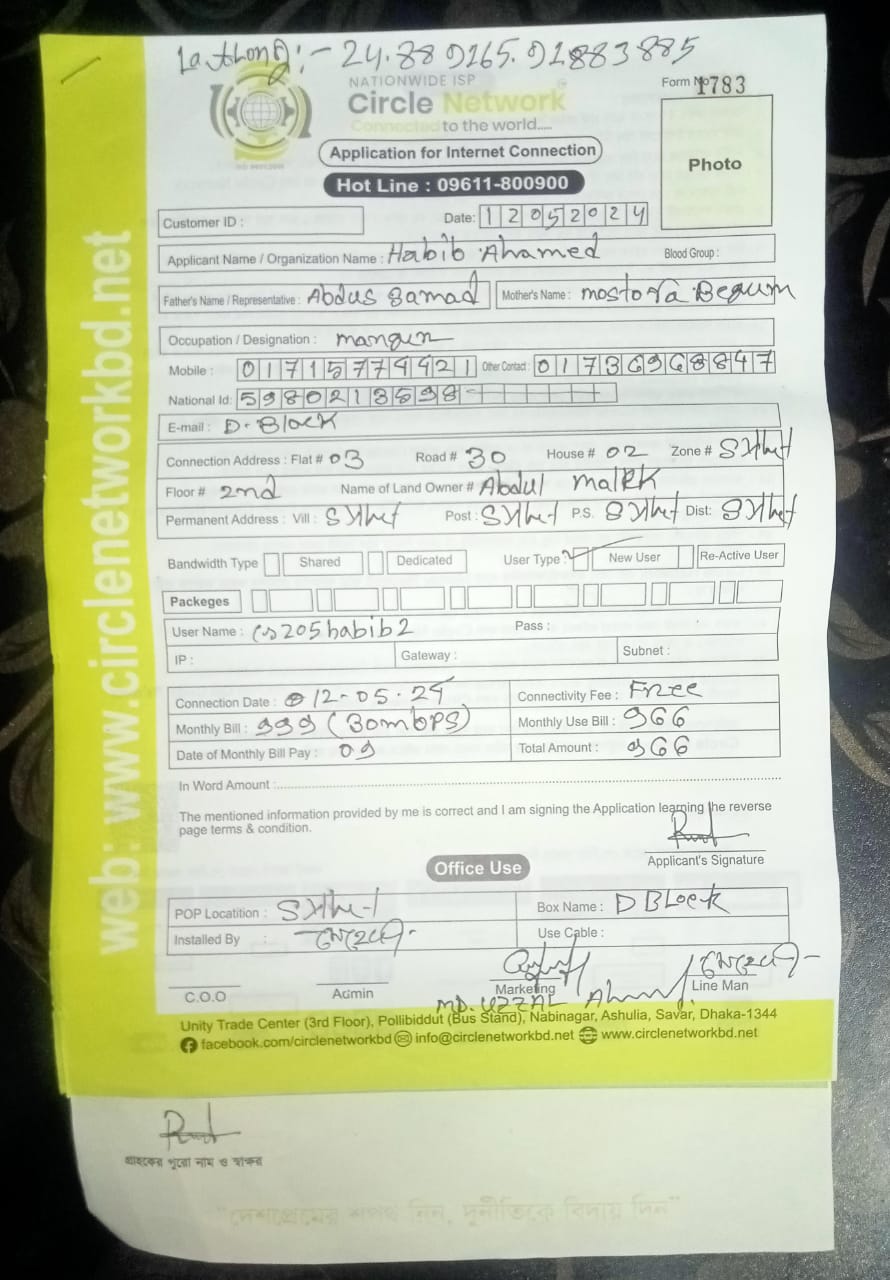 24.889265.91883885
NATIONWIDE ISP
Circle Network
Connected to the world.....
Form No 1783
Photo
Application for Internet Connection
Hot Line : 09611-800900
Customer ID :
Date: 12052024
Applicant Name / Organization Name : Habib Ahamed Blood Group :
Father's Name / Representative : Abdus Samad Mother's Name : Begum
Occupation / Designation :
Mobile : 01715774421 Other Contact : 01736968847
National Id: 5980213598
E-mail : D-Block
Connection Address : Flat # 03 Road # 30 House # 02 Zone # Sylhet
Floor # 2nd Name of Land Owner # Abdul Malik
Permanent Address : Vill : Sylhet Post : Sylhet P.S. Sylhet Dist: Sylhet
Bandwidth Type Shared Dedicated User Type : New User Re-Active User
Packeges
User Name : cs205habib2 Pass :
IP : Gateway : Subnet :
Connection Date : 12-05-24 Connectivity Fee : Free
Monthly Bill : 999 (30mbps) Monthly Use Bill : 966
Date of Monthly Bill Pay : 09 Total Amount : 966
In Word Amount :
The mentioned information provided by me is correct and I am signing the Application learning the reverse
page terms & condition.
Applicant's Signature
Office Use
POP Locatition : Sylhet Box Name : D BLock
Installed By : Use Cable :
C.O.O Admin Marketing Line Man
MD. UZZAL Ahmed
Unity Trade Center (3rd Floor), Pollibiddut (Bus Stand), Nabinagar, Ashulia, Savar, Dhaka-1344
facebook.com/circlenetworkbd info@circlenetworkbd.net www.circlenetworkbd.net
web: www.circlenetworkbd.net
গ্রাহকের পুরো নাম ও স্বাক্ষর
"দেশপ্রেমের শপথ নিন, দুর্নীতিকে বিদায় দিন"